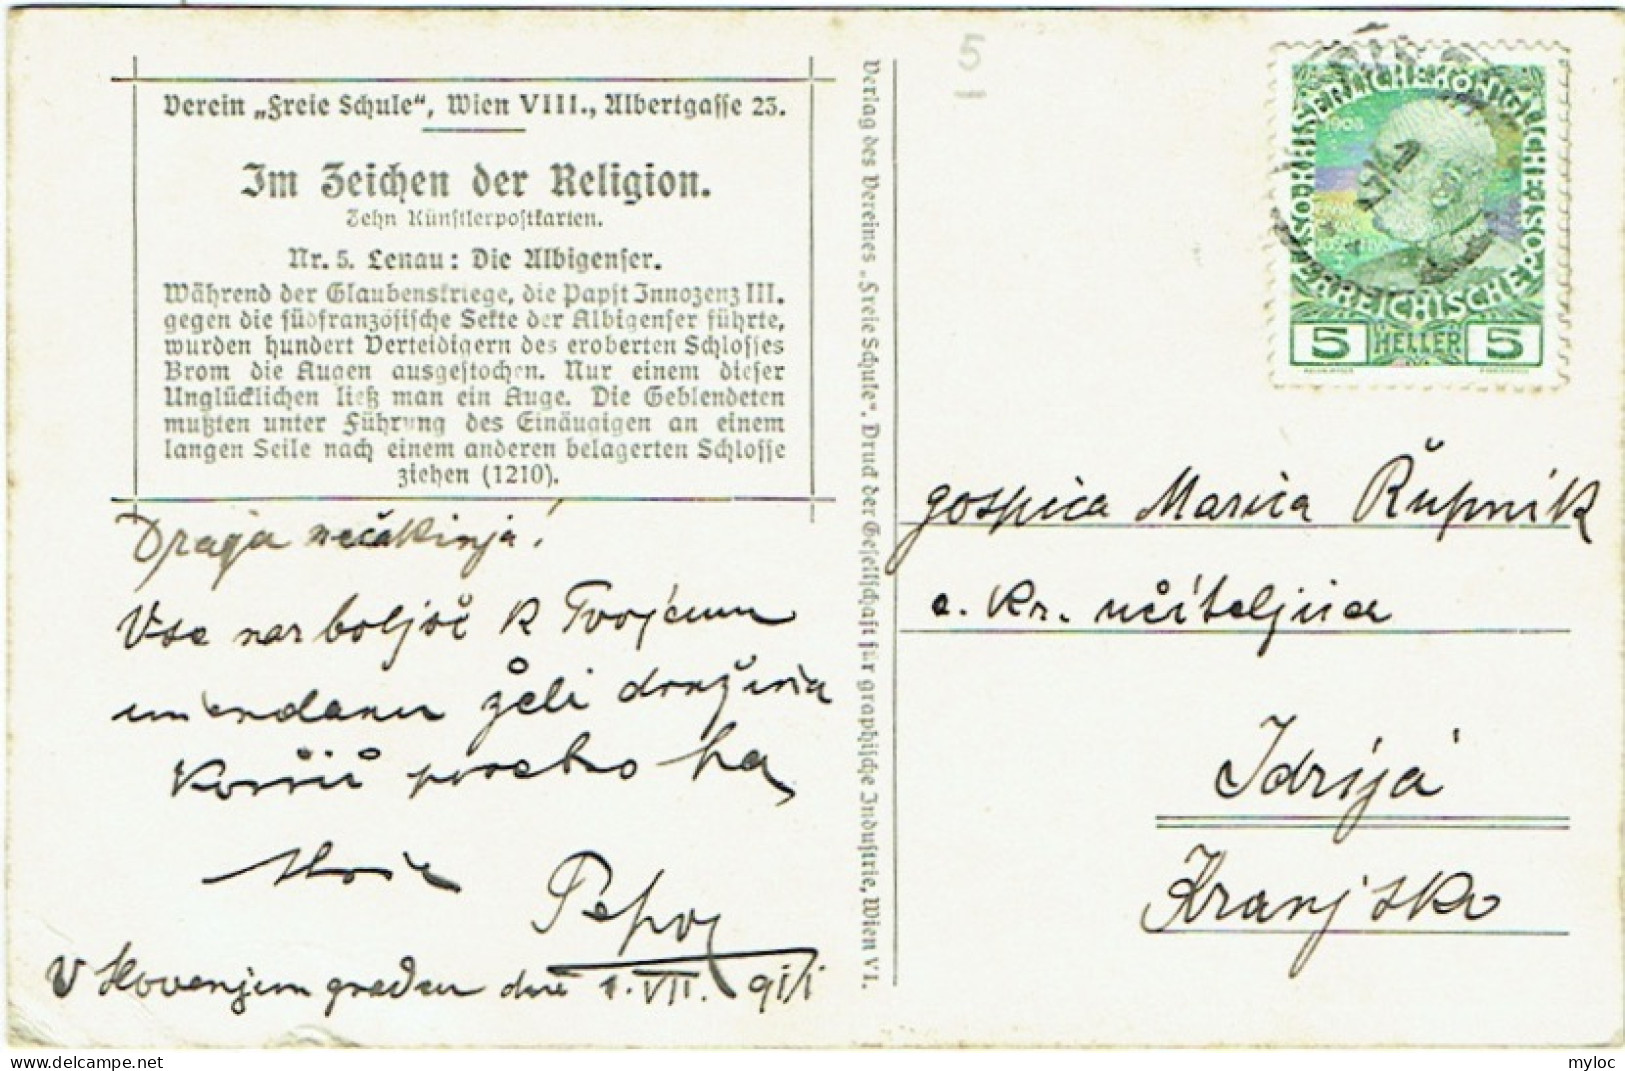 Verein „Freie Schule“, Wien VIII., Albertgasse 23.
Im Zeichen der Religion.
Zehn Künstlerpostkarten.
Nr. 5. Lenau: Die Albigenser.
Während der Glaubenskriege, die Papst Innozenz III.
gegen die südfranzösische Sekte der Albigenser führte,
wurden hundert Verteidigern des eroberten Schlosses
Brom die Augen ausgestochen. Nur einem dieser
Unglücklichen ließ man ein Auge. Die Geblendeten
mußten unter Führung des Einäugigen an einem
langen Seile nach einem anderen belagerten Schlosse
ziehen (1210).
Draga nečakinja!
Vse narboljše k Tvojemu
imendanu želi družina
posebno pa
V Slovenjem gradcu dne 1. VII. 911
Verlag des Vereines „Freie Schule“. Druck der Gesellschaft für graphische Industrie, Wien VI.
5
KAISERLICHE KÖNIGLICHE ÖSTERREICHISCHE POST
1908
5 HELLER 5
gospica Marica Rupnik
c. kr. učiteljica
Idrija
Kranjsko
myloc